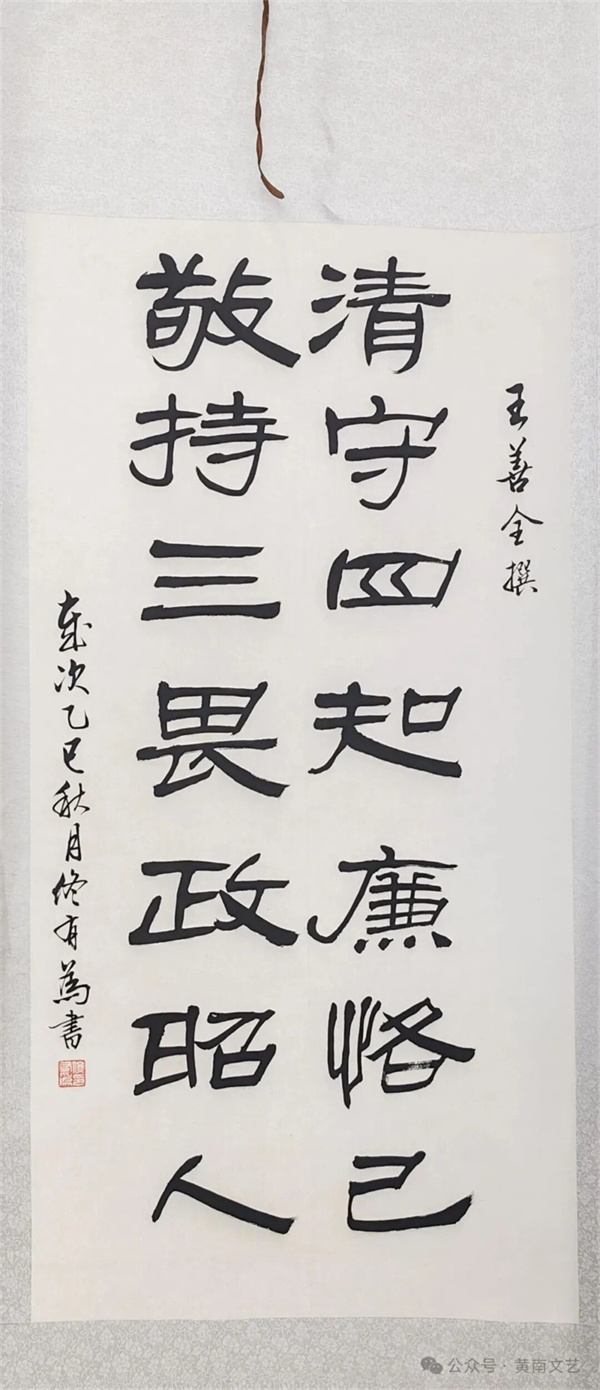 王善全撰
清守四知廉恪己
敬持三畏政昭人
岁次乙巳秋月佟有为書
公众号·黄南文艺